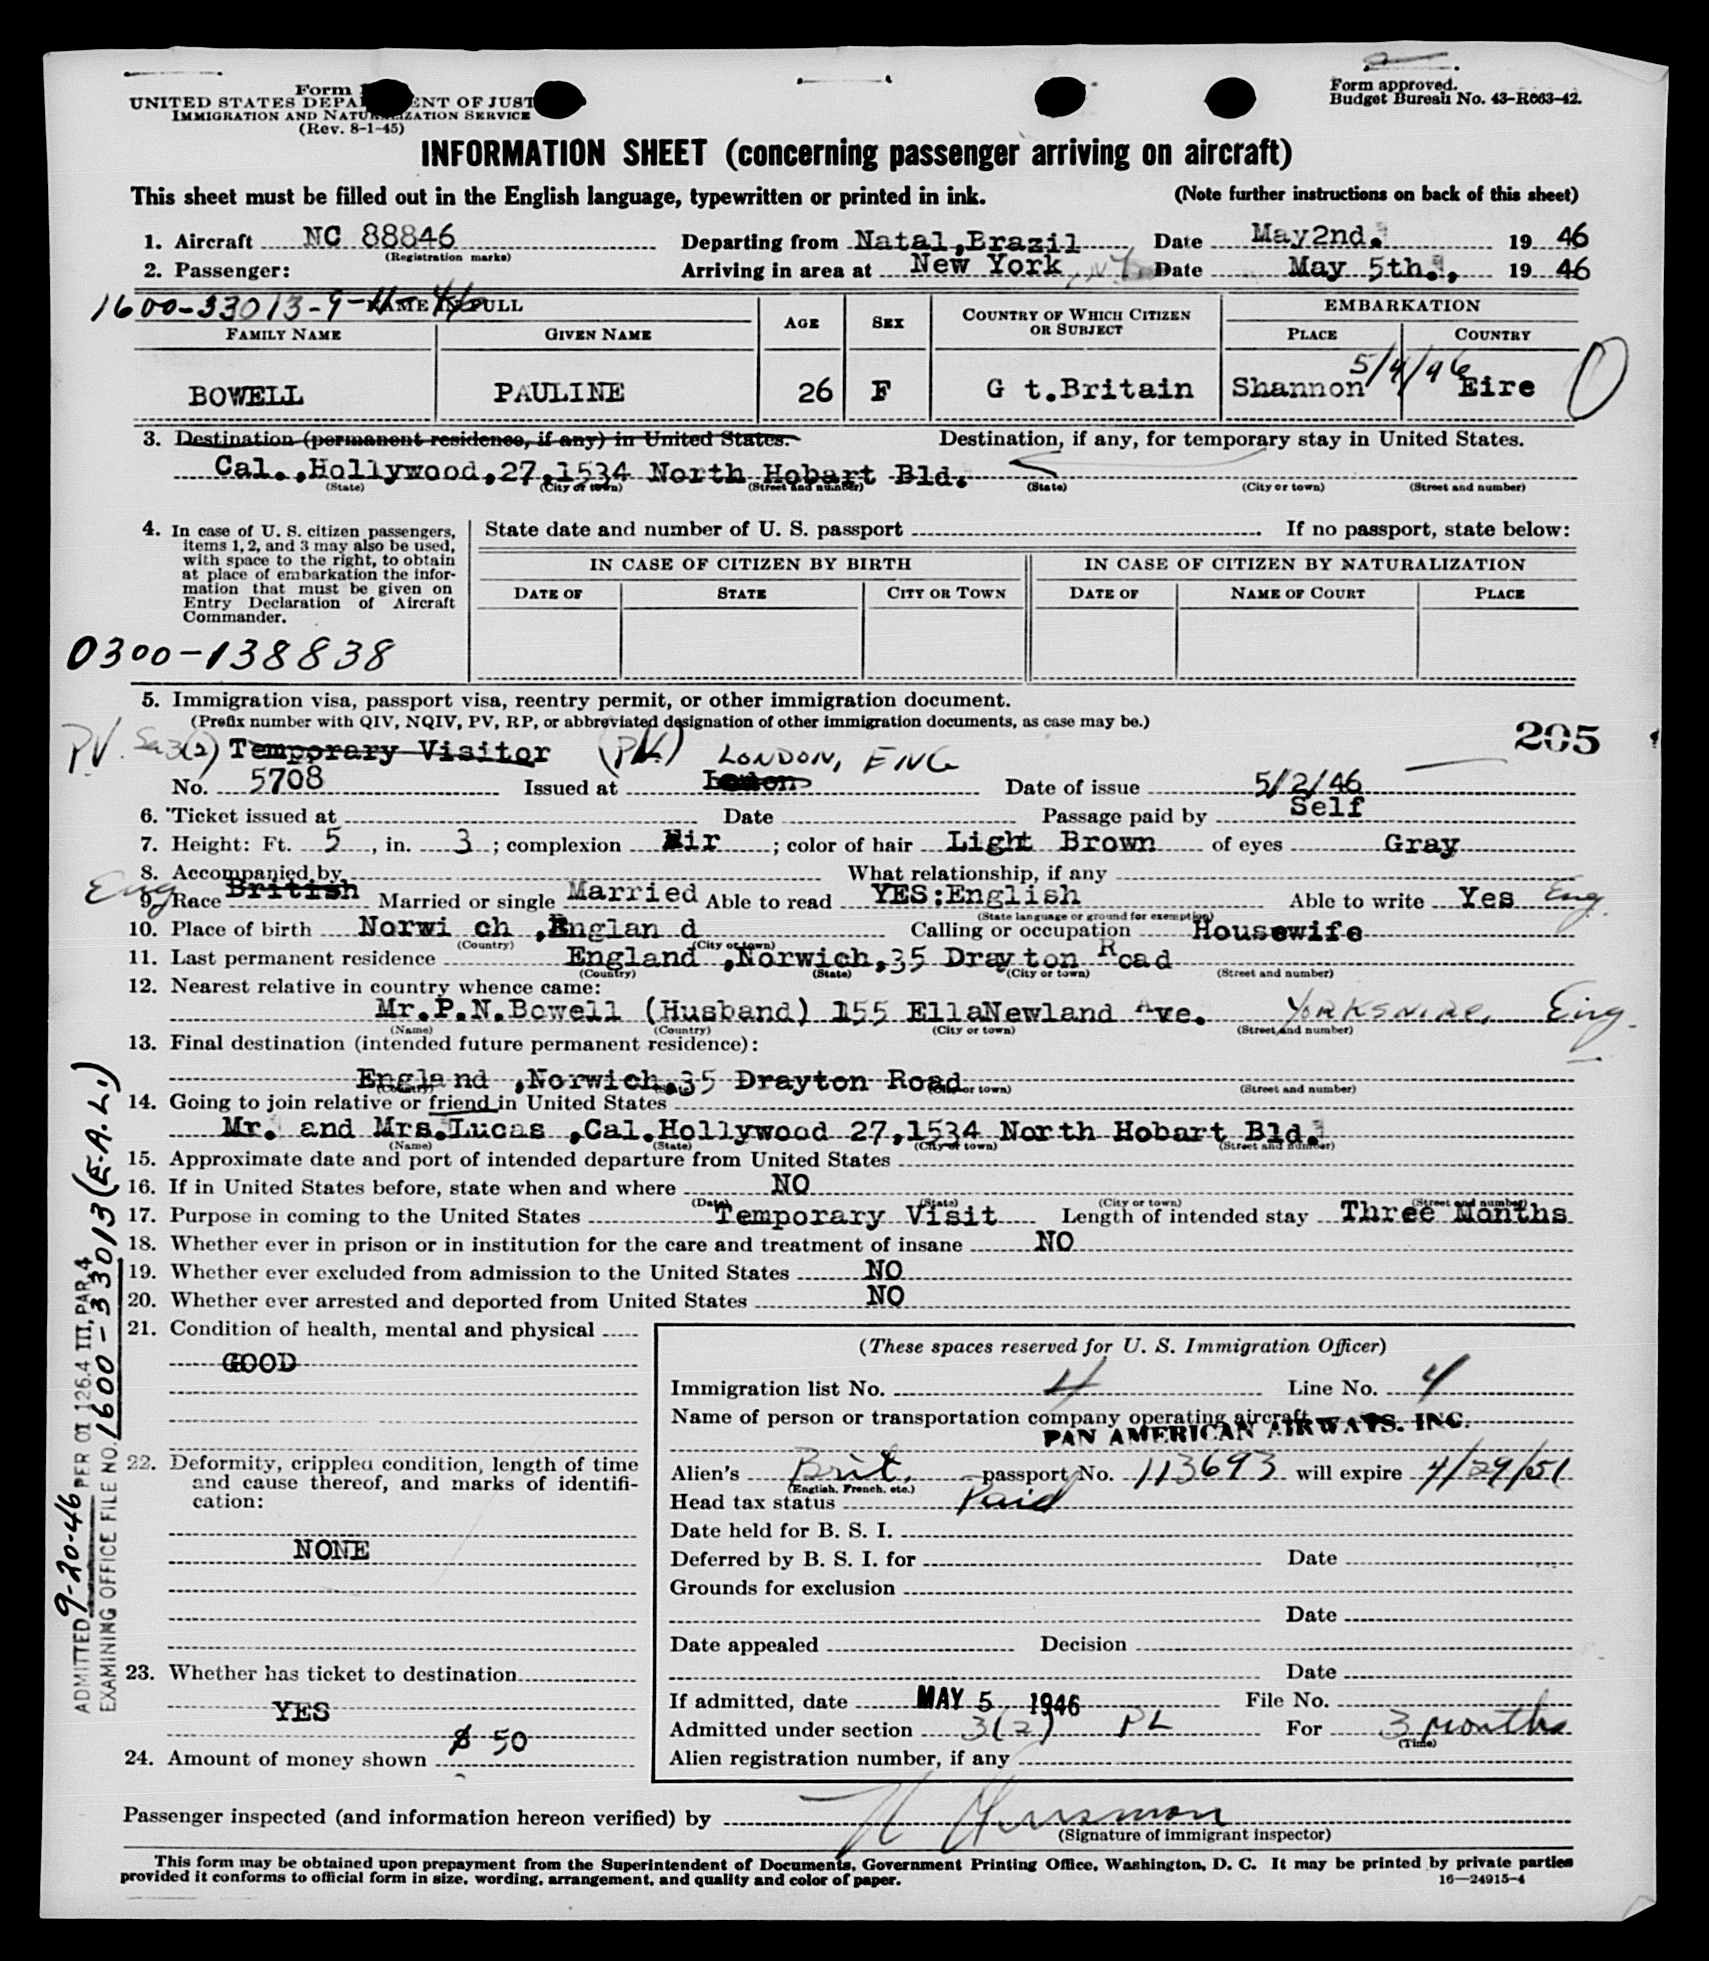 Form
UNITED STATES DEPA ENT OF JUST
IMMIGRATION AND NATURALIZATION SERVICE
(Rev. 8-1-45)
Form approved.
Budget Bureau No. 43-R063-42.
INFORMATION SHEET (concerning passenger arriving on aircraft)
This sheet must be filled out in the English language, typewritten or printed in ink. (Note further instructions on back of this sheet)
1. Aircraft NC 88846 Departing from Natal,Brazil Date May2nd. 19 46
(Registration marks)
2. Passenger: Arriving in area at New York N.Y. Date May 5th., 19 46
1600-33013-9-4-46 NAME IN FULL
FAMILY NAME GIVEN NAME AGE SEX COUNTRY OF WHICH CITIZEN OR SUBJECT EMBARKATION
PLACE COUNTRY
5/4/46
BOWELL PAULINE 26 F G t.Britain Shannon Eire 0
3. Destination (permanent residence, if any) in United States. Destination, if any, for temporary stay in United States.
Cal.,Hollywood,27,1534 North Hobart Bld.
(State) (City or town) (Street and number) (State) (City or town) (Street and number)
4. In case of U. S. citizen passengers, items 1, 2, and 3 may also be used, with space to the right, to obtain at place of embarkation the information that must be given on Entry Declaration of Aircraft Commander.
State date and number of U. S. passport If no passport, state below:
IN CASE OF CITIZEN BY BIRTH IN CASE OF CITIZEN BY NATURALIZATION
DATE OF STATE CITY OR TOWN DATE OF NAME OF COURT PLACE
0300-138838
5. Immigration visa, passport visa, reentry permit, or other immigration document.
(Prefix number with QIV, NQIV, PV, RP, or abbreviated designation of other immigration documents, as case may be.)
205
PV. Sec 3(2) Temporary Visitor (PV) LONDON, ENG
No. 5708 Issued at London Date of issue 5/2/46
6. Ticket issued at Date Passage paid by Self
7. Height: Ft. 5, in. 3; complexion ; color of hair Light Brown of eyes Gray
8. Accompanied by What relationship, if any
Eng 9. Race British Married or single Married Able to read YES:English Able to write Yes Eng.
(State language or ground for exemption)
10. Place of birth Norwi ch ,Englan d Calling or occupation Housewife
(Country) (City or town)
11. Last permanent residence England ,Norwich,35 Drayton Road
(Country) (State) (City or town) (Street and number)
12. Nearest relative in country whence came:
Mr.P.N.Bowell (Husband) 155 EllaNewland Ave. Yorkshire, Eng.
(Name) (Country) (City or town) (Street and number)
13. Final destination (intended future permanent residence):
England ,Norwich,35 Drayton Road
(Country) (City or town) (Street and number)
14. Going to join relative or friend in United States
Mr. and Mrs.Lucas ,Cal.Hollywood 27,1534 North Hobart Bld.
(Name) (State) (City or town) (Street and number)
15. Approximate date and port of intended departure from United States
16. If in United States before, state when and where NO
(Date) (State) (City or town) (Street and number)
17. Purpose in coming to the United States Temporary Visit Length of intended stay Three Months
18. Whether ever in prison or in institution for the care and treatment of insane NO
19. Whether ever excluded from admission to the United States NO
20. Whether ever arrested and deported from United States NO
21. Condition of health, mental and physical
GOOD
22. Deformity, crippled condition, length of time and cause thereof, and marks of identification:
NONE
23. Whether has ticket to destination
YES
24. Amount of money shown $ 50
(These spaces reserved for U. S. Immigration Officer)
Immigration list No. 4 Line No. 4
Name of person or transportation company operating aircraft
PAN AMERICAN AIRWAYS. INC.
Alien's Brit. passport No. 113693 will expire 4/29/51
(English, French, etc.)
Head tax status Paid
Date held for B. S. I.
Deferred by B. S. I. for Date
Grounds for exclusion
Date
Date appealed Decision
Date
If admitted, date MAY 5 1946 File No.
Admitted under section 3(2) PL For 3 months
(Time)
Alien registration number, if any
Passenger inspected (and information hereon verified) by
(Signature of immigrant inspector)
This form may be obtained upon prepayment from the Superintendent of Documents, Government Printing Office, Washington, D. C. It may be printed by private parties
provided it conforms to official form in size, wording, arrangement, and quality and color of paper.
16—24915-4
ADMITTED 9-20-46 PER OI 126.4 III, PAR 4
EXAMINING OFFICE FILE NO. 1600-33013 (E.A.L.)